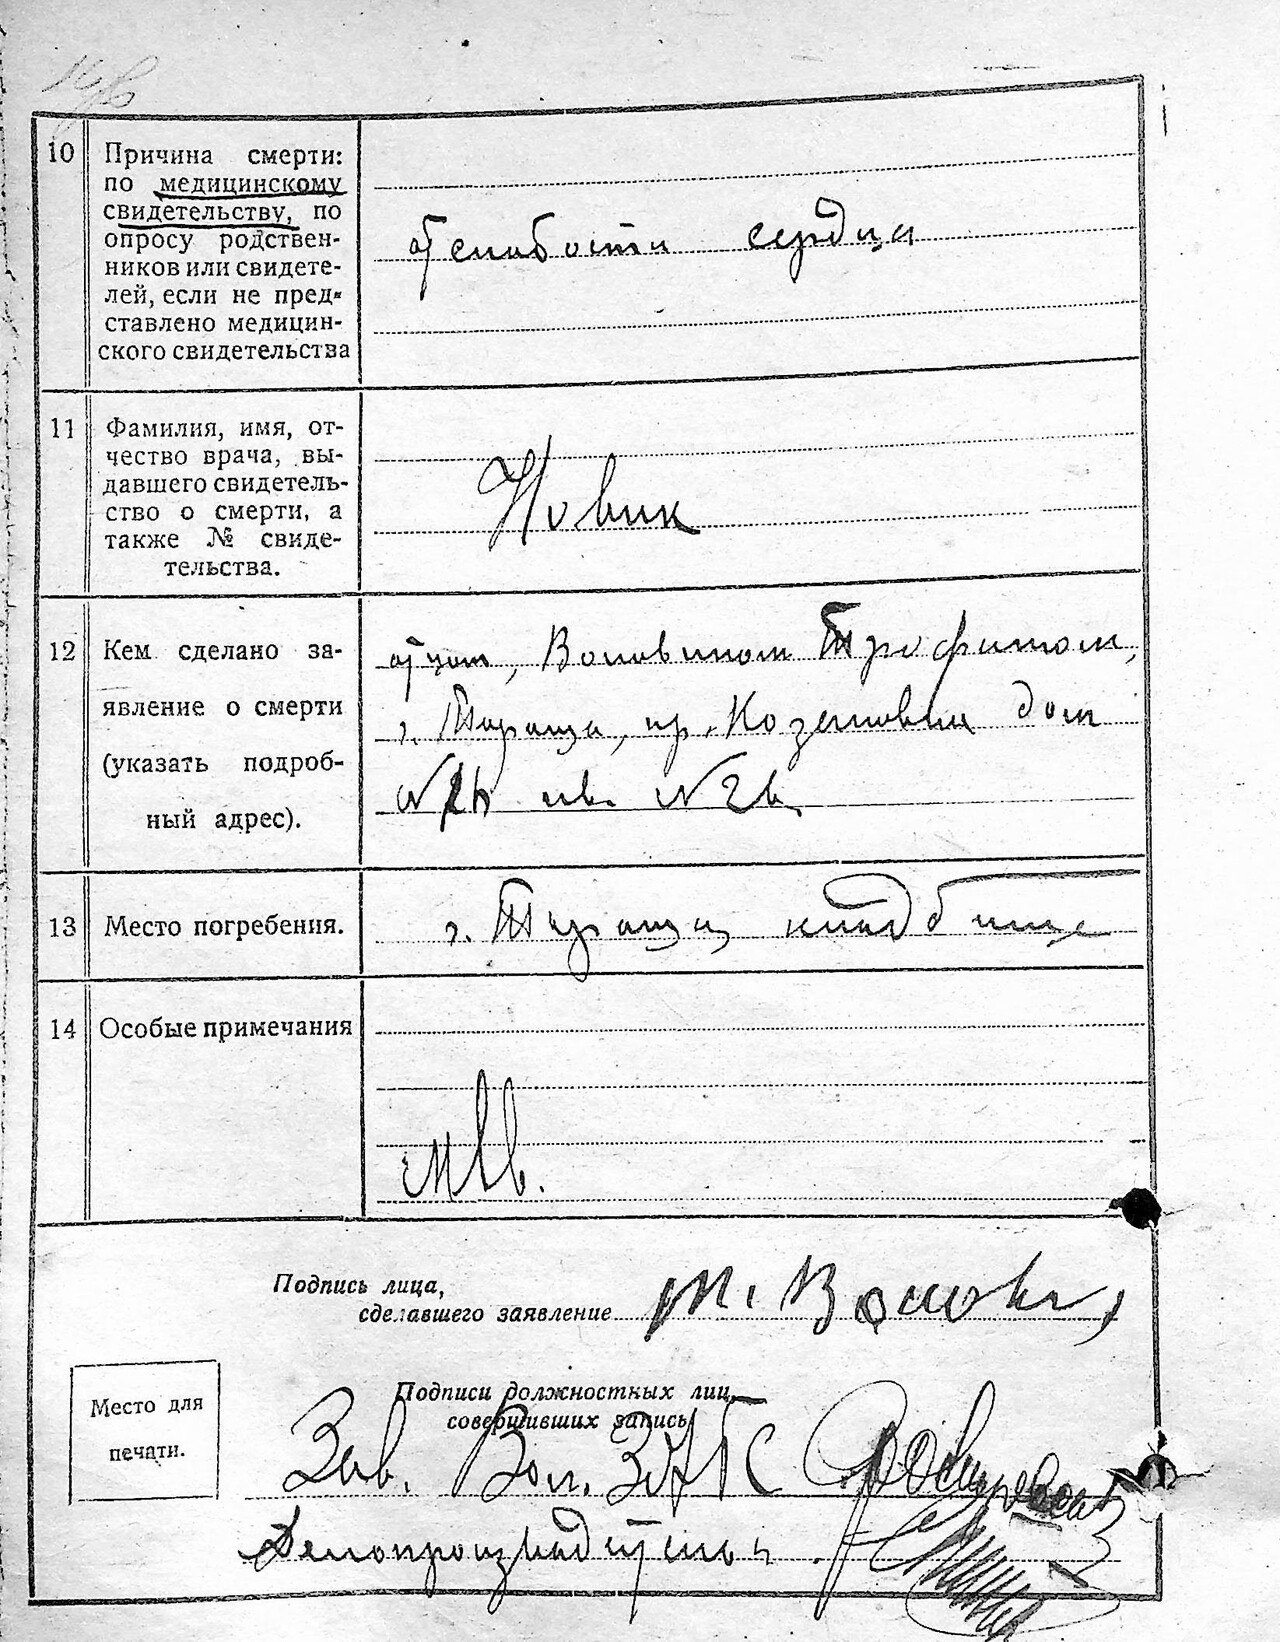 10 Причина смерти:
по медицинскому
свидетельству, по
опросу родствен-
ников или свидете-
лей, если не пред-
ставлено медицин-
ского свидетельства
от слабости сердца
11 Фамилия, имя, от-
чество врача, вы-
давшего свидетель-
ство о смерти, а
также № свиде-
тельства.
Новик
12 Кем сделано за-
явление о смерти
(указать подроб-
ный адрес).
отцом, Трофимом,
г. Тараща, дом
№ кв. №
13 Место погребения.
г. Тараща кладбище
14 Особые примечания
Подпись лица,
сделавшего заявление
Место для
печати.
Подписи должностных лиц,
совершивших запись
Зав. Вол. ЗАГС
Делопроизводитель